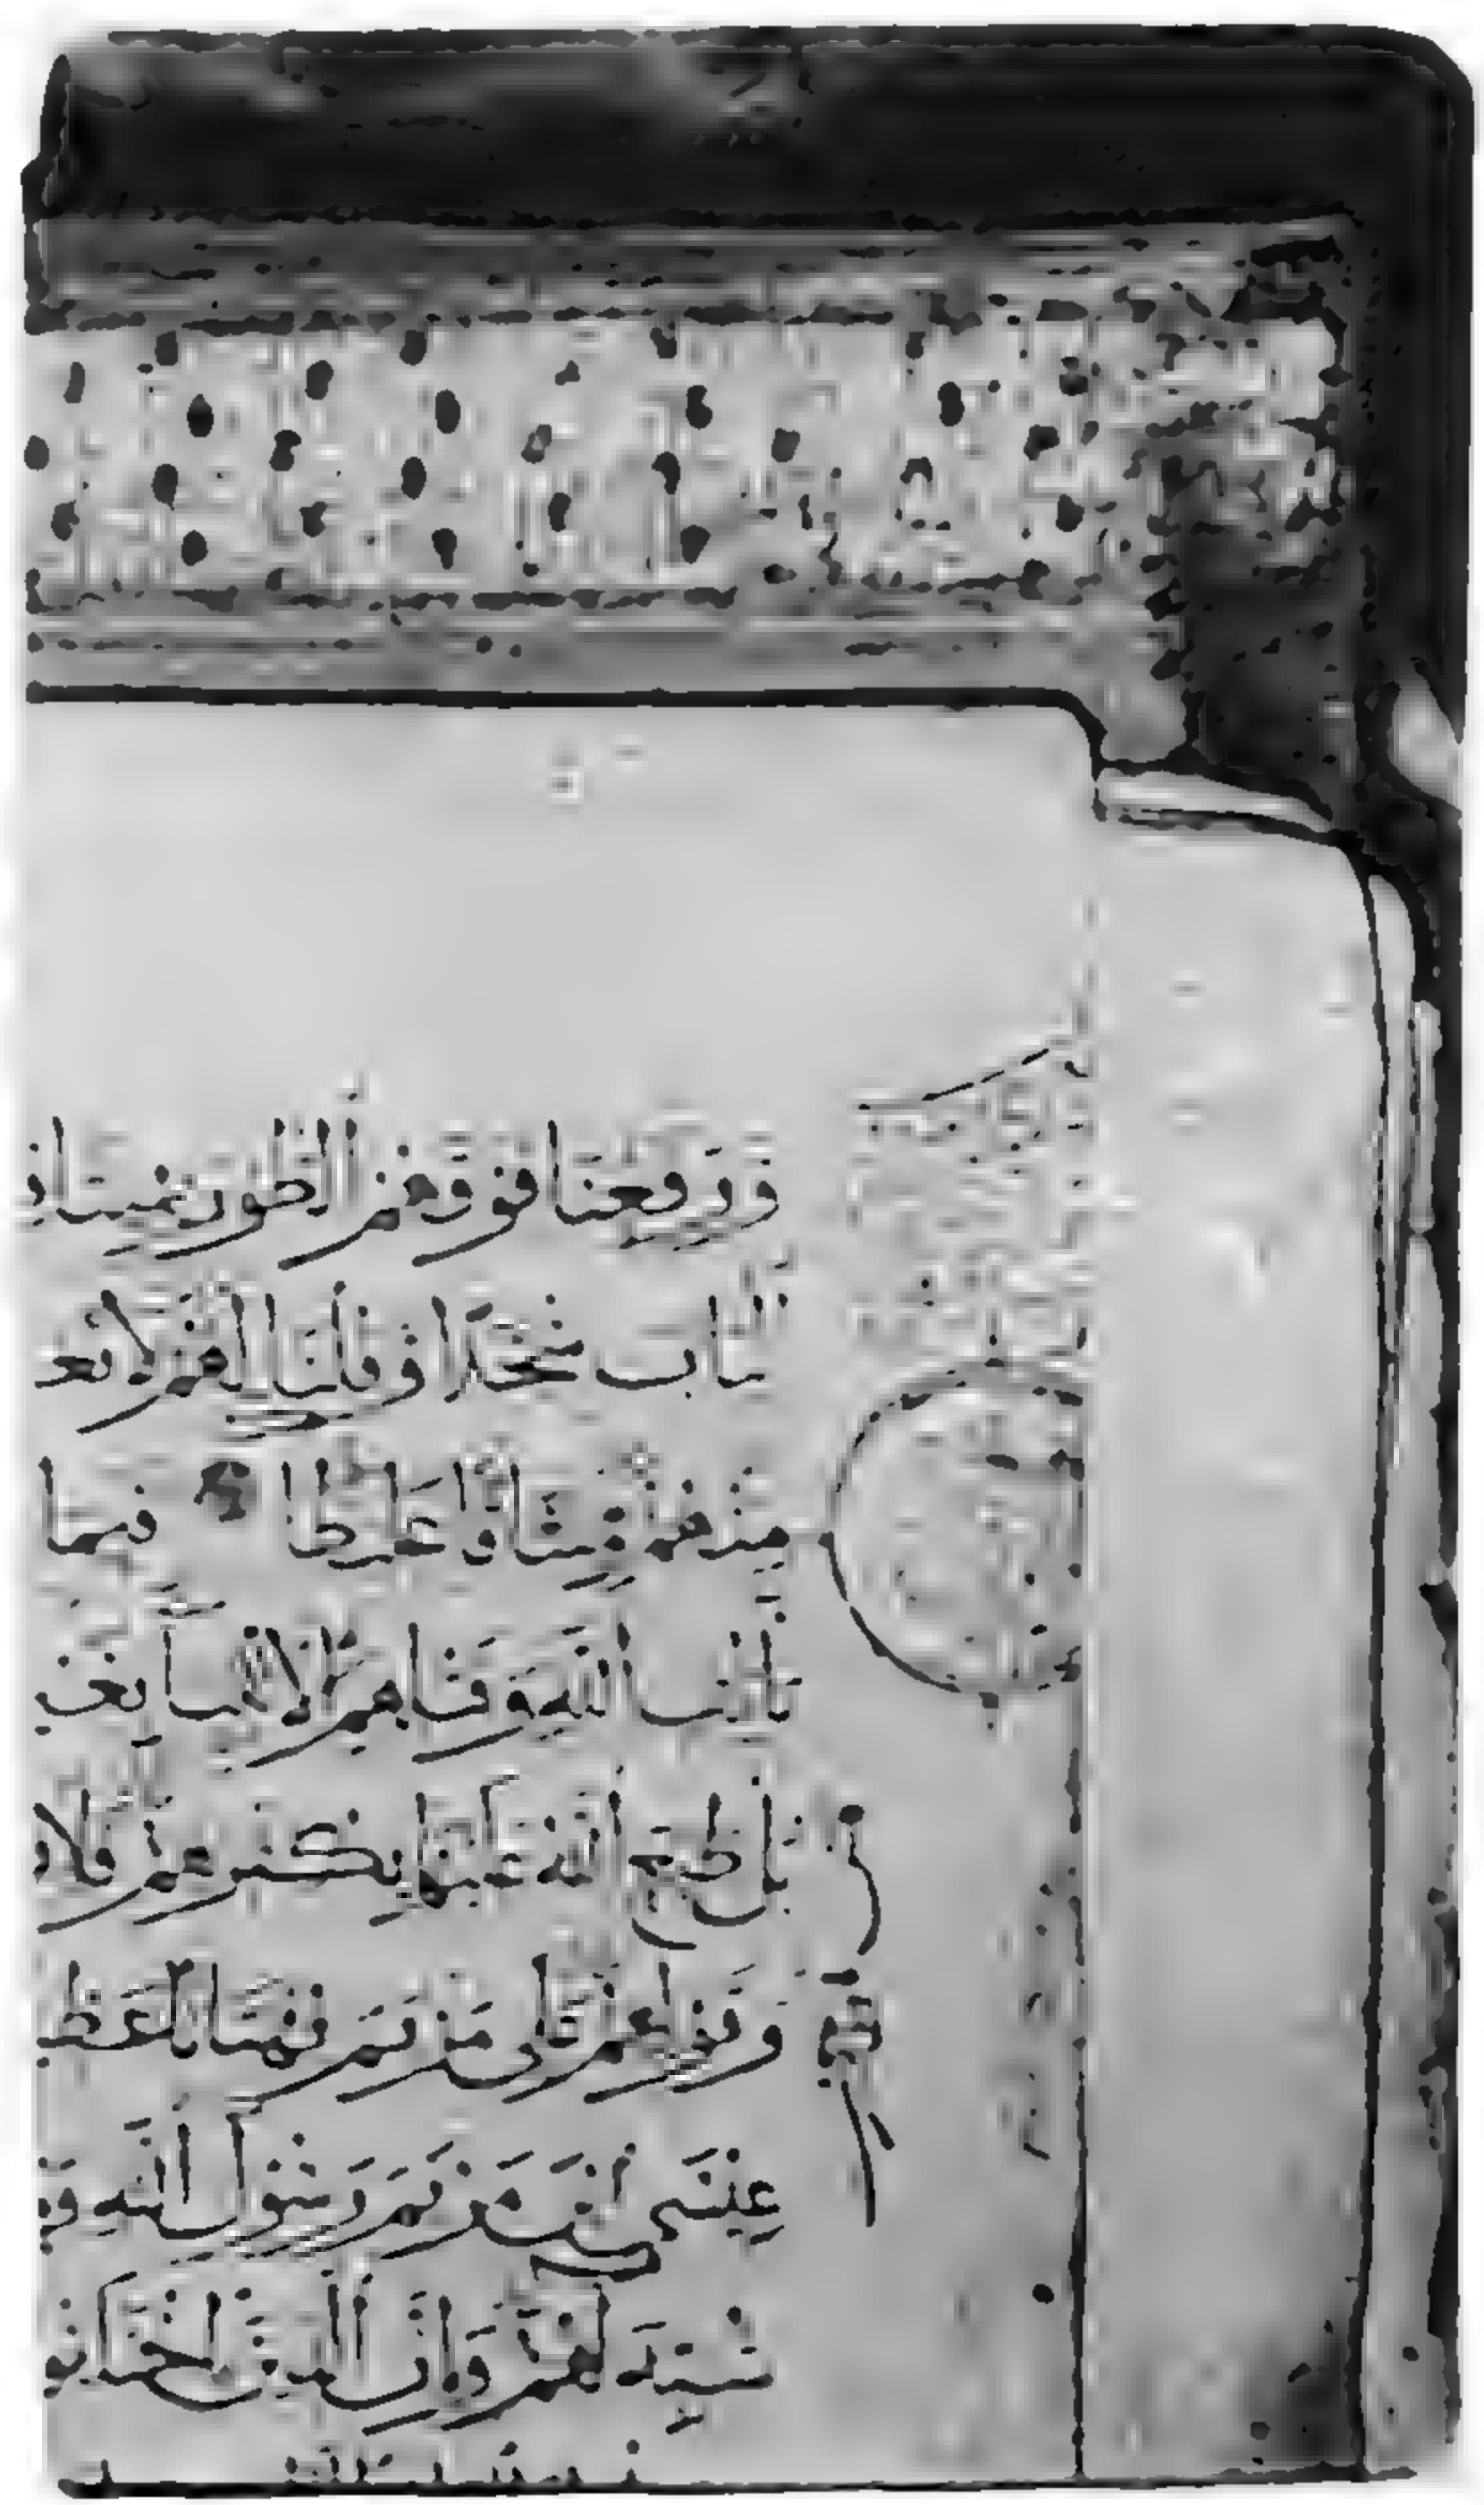 وَرَفَعْنَا فَوْقَهُمُ الطُّورَ بِمِيثَاقِ
الْبَابَ سُجَّدًا وَقُلْنَا لَهُمْ لَا تَعْدُ
مِنْهُمْ مِيثَاقًا غَلِيظًا فَبِمَا
بِآيَاتِ اللَّهِ وَقَتْلِهِمُ الْأَنْبِيَاءَ بِغَيْ
بَلْ طَبَعَ اللَّهُ عَلَيْهَا بِكُفْرِهِمْ فَلَا
وَقَوْلِهِمْ عَلَى مَرْيَمَ بُهْتَانًا عَظِي
عِيسَى ابْنَ مَرْيَمَ رَسُولَ اللَّهِ وَمَ
شُبِّهَ لَهُمْ وَإِنَّ الَّذِينَ اخْتَلَفُو